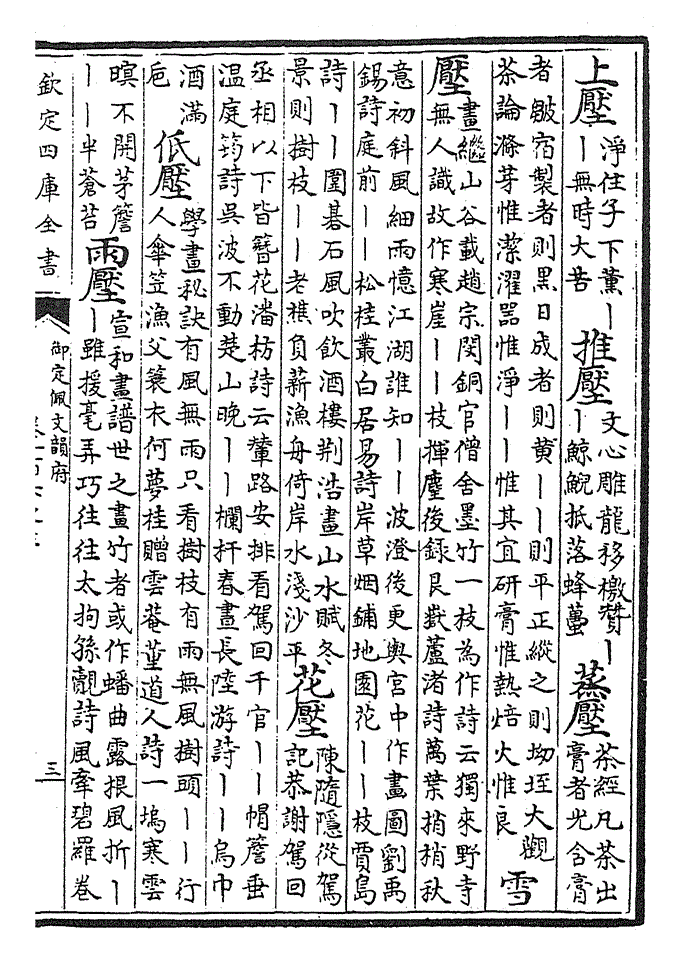 上壓 淨住子下薰丨丨無時大苦 推壓 文心雕龍移檄贊丨丨鯨鯢抵落蜂蠆 蒸壓 茶經凡茶出膏者光含膏
者皺宿製者則黑日成者則黃丨丨則平正縱之則坳垤大觀
茶論滌芽惟潔濯器惟淨丨丨惟其宜研膏惟熱焙火惟良 雪
壓 畫繼山谷載趙宗閔銅官僧舍墨竹一枝為作詩云獨來野寺
無人識故作寒崖丨丨枝揮麈後錄艮嶽蘆渚詩萬葉捎捎秋
意初斜風細雨憶江湖誰知丨丨波澄後更與宮中作畫圖劉禹
錫詩庭前丨丨松桂叢白居易詩岸草烟鋪地園花丨丨枝賈島
詩丨丨圍碁石風吹飲酒樓荆浩畫山水賦冬
景則樹枝丨丨老樵負薪漁舟倚岸水淺沙平 花壓 陳隨隱從駕記恭謝駕回
丞相以下皆簪花潘枋詩云輦路安排看駕回千官丨丨帽簷垂
溫庭筠詩吳波不動楚山晚丨丨欄杆春晝長陸游詩丨丨烏巾
酒滿巵 低壓 學畫秘訣有風無雨只看樹枝有雨無風樹頭丨丨行
人傘笠漁父簑衣何夢桂贈雲菴堃道人詩一塢寒雲
暝不開茅簷丨丨半蒼苔 雨壓 宣和畫譜世之畫竹者或作蟠曲露根風折丨
丨雖援毫弄巧往往太拘孫覿詩風牽碧羅卷
欽定四庫全書
御定佩文韻府
三